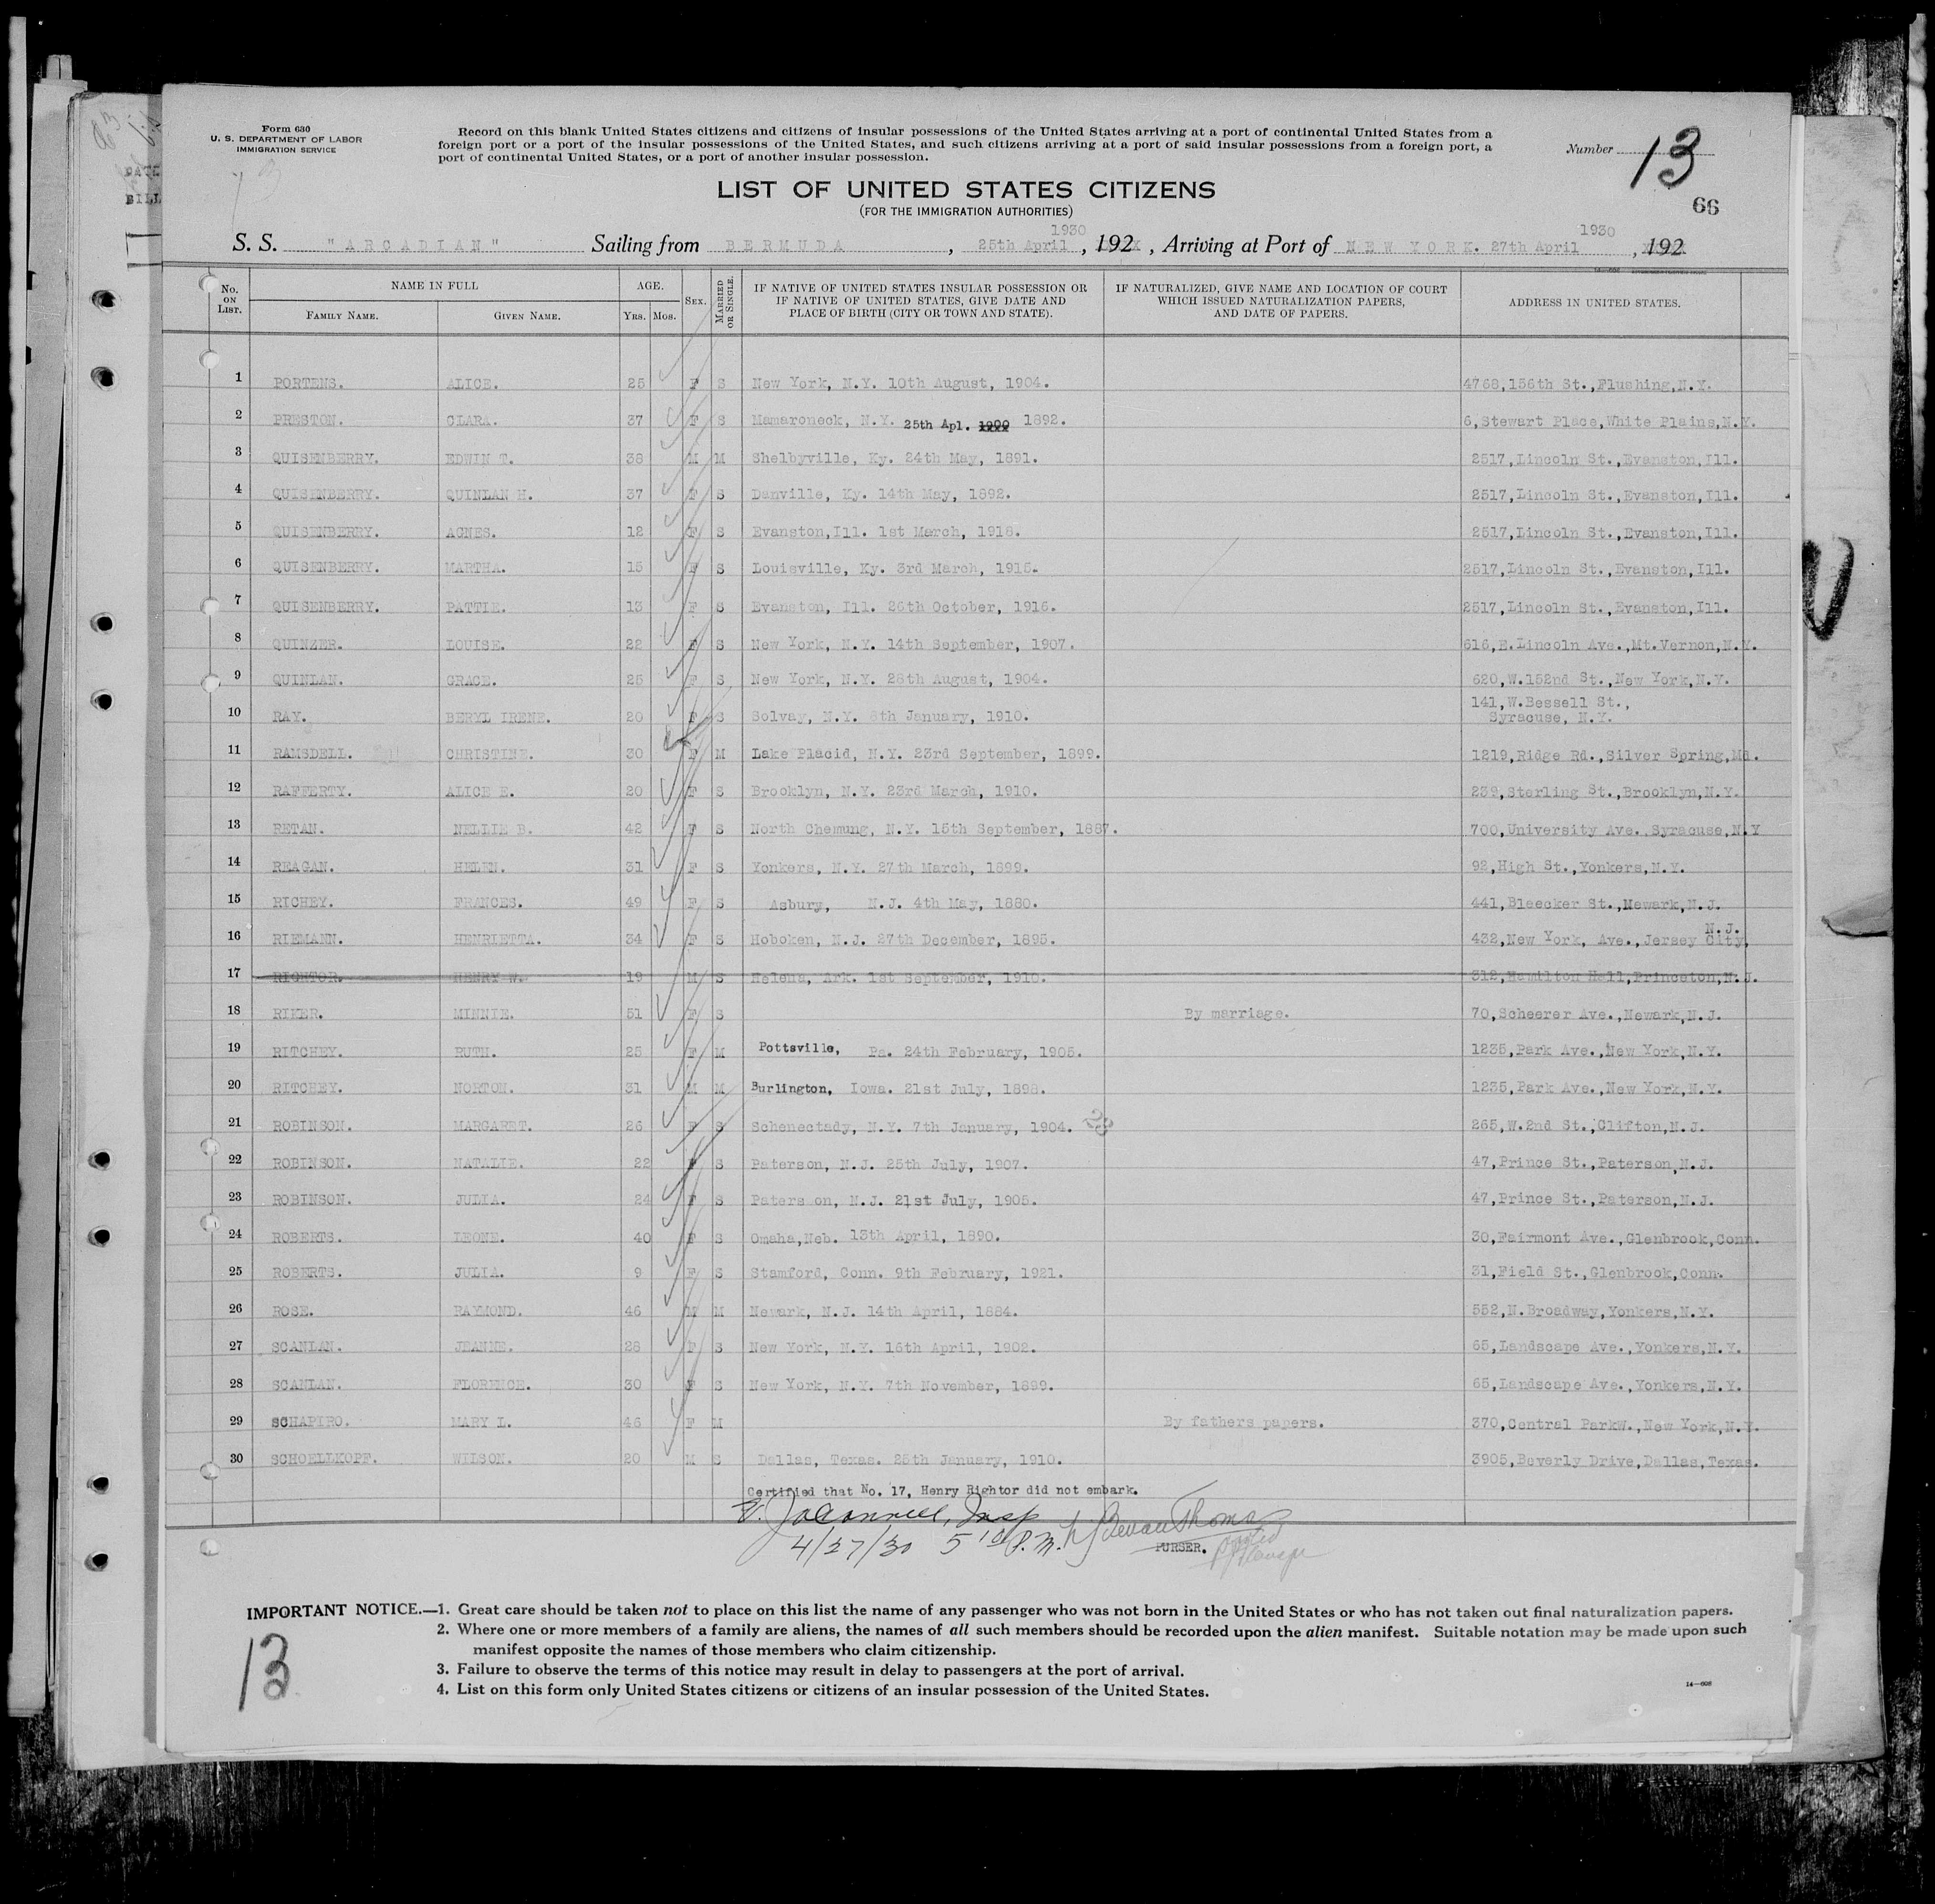 Form 630
U. S. DEPARTMENT OF LABOR
IMMIGRATION SERVICE
Record on this blank United States citizens and citizens of insular possessions of the United States arriving at a port of continental United States from a
foreign port or a port of the insular possessions of the United States, and such citizens arriving at a port of said insular possessions from a foreign port, a
port of continental United States, or a port of another insular possession.
Number 13
66
LIST OF UNITED STATES CITIZENS
(FOR THE IMMIGRATION AUTHORITIES)
S. S. "ARCADIAN" Sailing from BERMUDA, 25th April 1930, 192 , Arriving at Port of NEW YORK. 27th April 1930, 192
No. ON LIST. NAME IN FULL FAMILY NAME. GIVEN NAME. AGE. YRS. MOS. SEX. MARRIED OR SINGLE. IF NATIVE OF UNITED STATES INSULAR POSSESSION OR IF NATIVE OF UNITED STATES, GIVE DATE AND PLACE OF BIRTH (CITY OR TOWN AND STATE). IF NATURALIZED, GIVE NAME AND LOCATION OF COURT WHICH ISSUED NATURALIZATION PAPERS, AND DATE OF PAPERS. ADDRESS IN UNITED STATES.
1 PORTENS. ALICE. 25 F S New York, N.Y. 10th August, 1904. 4768,156th St.,Flushing,N.Y.
2 PRESTON. CLARA. 37 F S Mamaroneck, N.Y. 25th Apl. 1900 1892. 6,Stewart Place,White Plains,N.Y.
3 QUISENBERRY. EDWIN T. 38 M M Shelbyville, Ky. 24th May, 1891. 2517,Lincoln St.,Evanston,Ill.
4 QUISENBERRY. QUINLAN H. 37 F S Danville, Ky. 14th May, 1892. 2517,Lincoln St.,Evanston,Ill.
5 QUISENBERRY. AGNES. 12 F S Evanston,Ill. 1st March, 1918. 2517,Lincoln St.,Evanston,Ill.
6 QUISENBERRY. MARTHA. 15 F S Louisville, Ky. 3rd March, 1915. 2517,Lincoln St.,Evanston,Ill.
7 QUISENBERRY. PATTIE. 13 F S Evanston, Ill. 26th October, 1916. 2517,Lincoln St.,Evanston,Ill.
8 QUINZER. LOUISE. 22 F S New York, N.Y. 14th September, 1907. 616,E.Lincoln Ave.,Mt.Vernon,N.Y.
9 QUINLAN. GRACE. 25 F S New York, N.Y. 28th August, 1904. 620,W.152nd St.,New York,N.Y.
10 RAY. BERYL IRENE. 20 F S Solvay, N.Y. 8th January, 1910. 141,W.Bessell St., Syracuse, N.Y.
11 RAMSDELL. CHRISTINE. 30 F M Lake Placid, N.Y. 23rd September, 1899. 1219,Ridge Rd.,Silver Spring,Md.
12 RAFFERTY. ALICE E. 20 F S Brooklyn, N.Y. 23rd March, 1910. 239,Sterling St.,Brooklyn,N.Y.
13 RETAN. NELLIE B. 42 F S North Chemung, N.Y. 15th September, 1887. 700,University Ave. Syracuse,N.Y
14 REAGAN. HELEN. 31 F S Yonkers, N.Y. 27th March, 1899. 92,High St.,Yonkers,N.Y.
15 RICHEY. FRANCES. 49 F S Asbury, N.J. 4th May, 1880. 441,Bleecker St.,Newark,N.J.
16 RIEMANN. HENRIETTA. 34 F S Hoboken, N.J. 27th December, 1895. 432,New York, Ave.,Jersey City, N.J.
17 RIGHTOR. HENRY W. 19 M S Helena, Ark. 1st September, 1910. 312,Hamilton Hall,Princeton,N.J.
18 RIKER. MINNIE. 51 F S By marriage. 70,Scheerer Ave.,Newark,N.J.
19 RITCHEY. RUTH. 25 F M Pottsville, Pa. 24th February, 1905. 1235,Park Ave.,New York,N.Y.
20 RITCHEY. NORTON. 31 M M Burlington, Iowa. 21st July, 1898. 1235,Park Ave.,New York,N.Y.
21 ROBINSON. MARGARET. 26 F S Schenectady, N.Y. 7th January, 1904. 23 265,W.2nd St.,Clifton,N.J.
22 ROBINSON. NATALIE. 22 F S Paterson, N.J. 25th July, 1907. 47,Prince St.,Paterson,N.J.
23 ROBINSON. JULIA. 24 F S Paterson, N.J. 21st July, 1905. 47,Prince St.,Paterson,N.J.
24 ROBERTS. LEONE. 40 F S Omaha,Neb. 13th April, 1890. 30,Fairmont Ave.,Glenbrook,Conn.
25 ROBERTS. JULIA. 9 F S Stamford, Conn. 9th February, 1921. 31,Field St.,Glenbrook,Conn.
26 ROSE. RAYMOND. 46 M M Newark, N.J. 14th April, 1884. 552,N.Broadway,Yonkers,N.Y.
27 SCANLAN. JEANNE. 28 F S New York, N.Y. 16th April, 1902. 65,Landscape Ave.,Yonkers,N.Y.
28 SCANLAN. FLORENCE. 30 F S New York, N.Y. 7th November, 1899. 65,Landscape Ave.,Yonkers,N.Y.
29 SCHAPIRO. MARY L. 46 F M By fathers papers. 370,Central ParkW.,New York,N.Y.
30 SCHOELLKOPF. WILSON. 20 M S Dallas, Texas. 25th January, 1910. 3905,Beverly Drive,Dallas,Texas.
Certified that No. 17, Henry Rightor did not embark.
Insp
4/27/30 5 10 P.M. Bevan Thomas
PURSER.
IMPORTANT NOTICE.—1. Great care should be taken not to place on this list the name of any passenger who was not born in the United States or who has not taken out final naturalization papers.
2. Where one or more members of a family are aliens, the names of all such members should be recorded upon the alien manifest. Suitable notation may be made upon such
manifest opposite the names of those members who claim citizenship.
3. Failure to observe the terms of this notice may result in delay to passengers at the port of arrival.
4. List on this form only United States citizens or citizens of an insular possession of the United States.
13
14—608